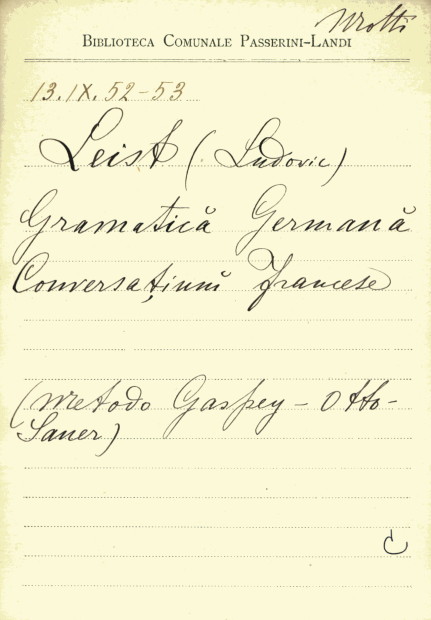 Motti
BIBLIOTECA COMUNALE PASSERINI-LANDI
13.IX.52-53
Leist (Ludovic)
Gramatică Germană
Conversaţiunĭ francese
(Metodo Gaspey - Otto-
Sauer)
C